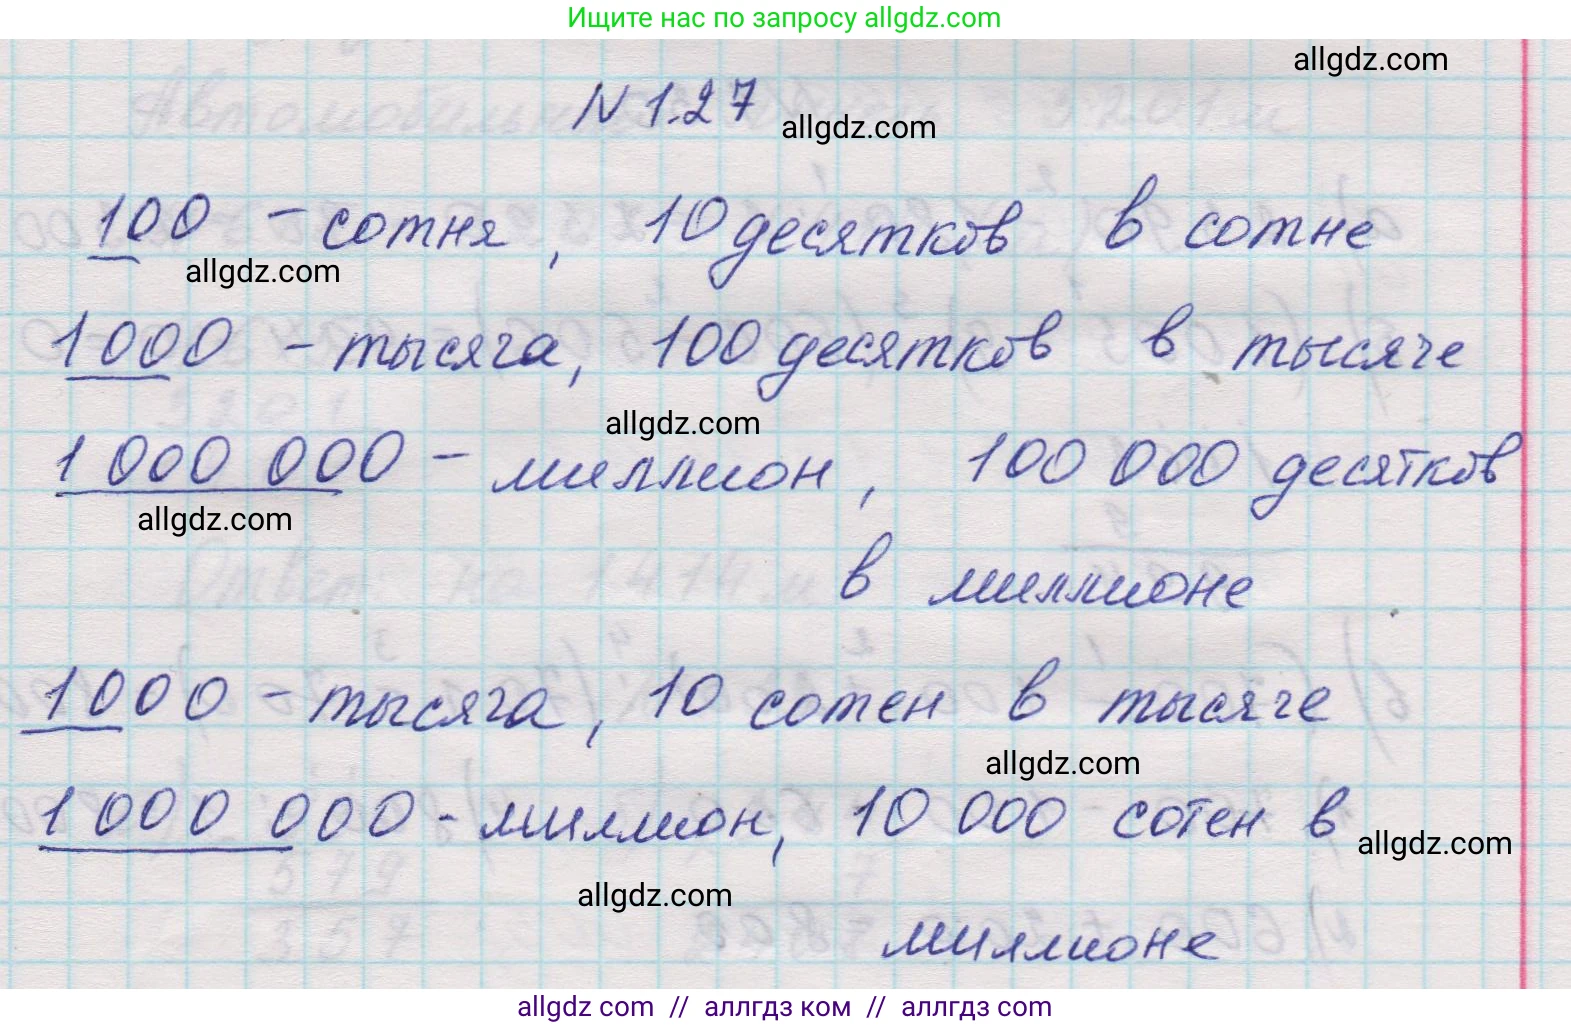 Ищите нас по запросу allgdz.com
allgdz.com
N 1.27
allgdz.com
100 - сотня, 10 десятков в сотне
allgdz.com
1000 - тысяга, 100 десятков в тысяче
allgdz.com
1 000 000 - миллион, 100 000 десятков
allgdz.com
в миллионе
1000 - тысяга, 10 сотен в тысяче
allgdz.com
1 000 000 - миллион, 10 000 сотен в
allgdz.com
allgdz.com
миллионе
allgdz com // аллгдз ком // аллгтдз com